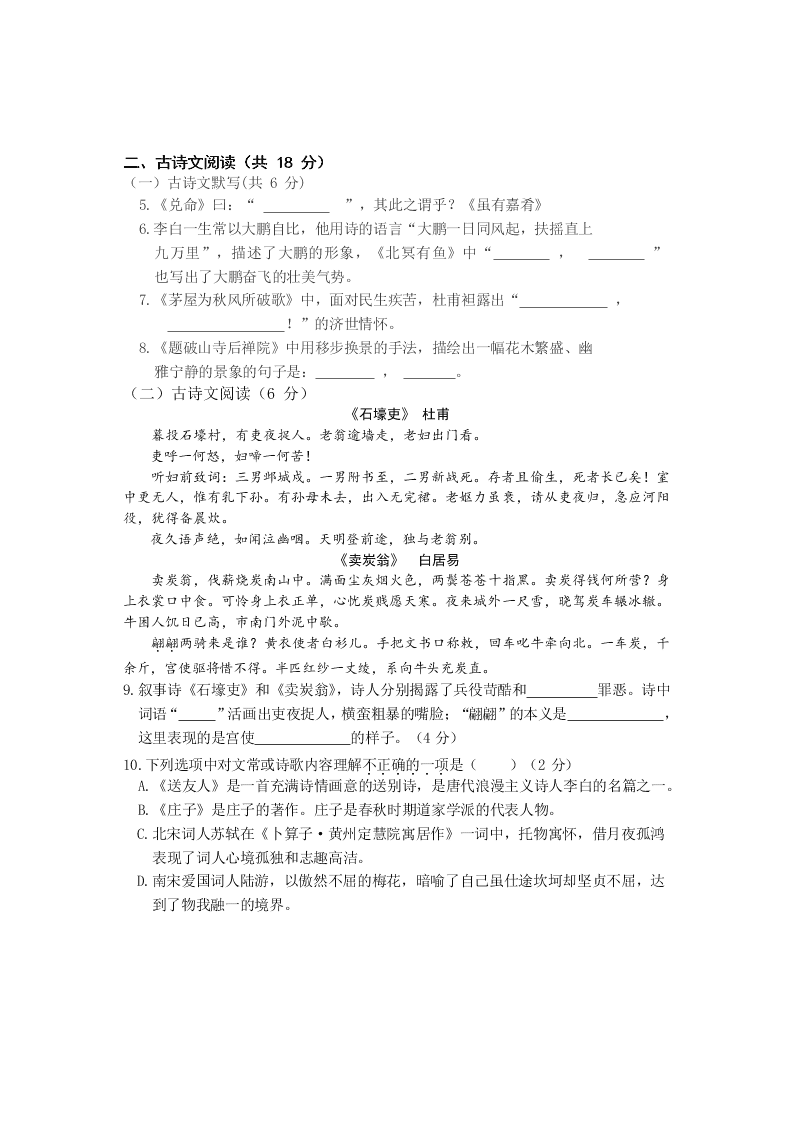 二、古诗文阅读（共 18 分）
（一）古诗文默写(共 6 分)
5.《兑命》曰：“ _________ ”，其此之谓乎？《虽有嘉肴》
6.李白一生常以大鹏自比，他用诗的语言“大鹏一日同风起，扶摇直上
九万里”，描述了大鹏的形象，《北冥有鱼》中“_______ ， _______ ”
也写出了大鹏奋飞的壮美气势。
7.《茅屋为秋风所破歌》中，面对民生疾苦，杜甫袒露出“___________ ，
_______________！”的济世情怀。
8.《题破山寺后禅院》中用移步换景的手法，描绘出一幅花木繁盛、幽
雅宁静的景象的句子是：________ ， _______。
（二）古诗文阅读（6 分）
《石壕吏》 杜甫
暮投石壕村，有吏夜捉人。老翁逾墙走，老妇出门看。
吏呼一何怒，妇啼一何苦！
听妇前致词：三男邺城戍。一男附书至，二男新战死。存者且偷生，死者长已矣！室
中更无人，惟有乳下孙。有孙母未去，出入无完裙。老妪力虽衰，请从吏夜归，急应河阳
役，犹得备晨炊。
夜久语声绝，如闻泣幽咽。天明登前途，独与老翁别。
《卖炭翁》 白居易
卖炭翁，伐薪烧炭南山中。满面尘灰烟火色，两鬓苍苍十指黑。卖炭得钱何所营？身
上衣裳口中食。可怜身上衣正单，心忧炭贱愿天寒。夜来城外一尺雪，晓驾炭车辗冰辙。
牛困人饥日已高，市南门外泥中歇。
翩翩两骑来是谁？黄衣使者白衫儿。手把文书口称敕，回车叱牛牵向北。一车炭，千
余斤，宫使驱将惜不得。半匹红纱一丈绫，系向牛头充炭直。
9.叙事诗《石壕吏》和《卖炭翁》，诗人分别揭露了兵役苛酷和_________罪恶。诗中
词语“_____”活画出吏夜捉人，横蛮粗暴的嘴脸；“翩翩”的本义是____________，
这里表现的是宫使____________的样子。（4 分）
10.下列选项中对文常或诗歌内容理解不正确的一项是（ ）（2 分）
A.《送友人》是一首充满诗情画意的送别诗，是唐代浪漫主义诗人李白的名篇之一。
B.《庄子》是庄子的著作。庄子是春秋时期道家学派的代表人物。
C.北宋词人苏轼在《卜算子·黄州定慧院寓居作》一词中，托物寓怀，借月夜孤鸿
表现了词人心境孤独和志趣高洁。
D.南宋爱国词人陆游，以傲然不屈的梅花，暗喻了自己虽仕途坎坷却坚贞不屈，达
到了物我融一的境界。